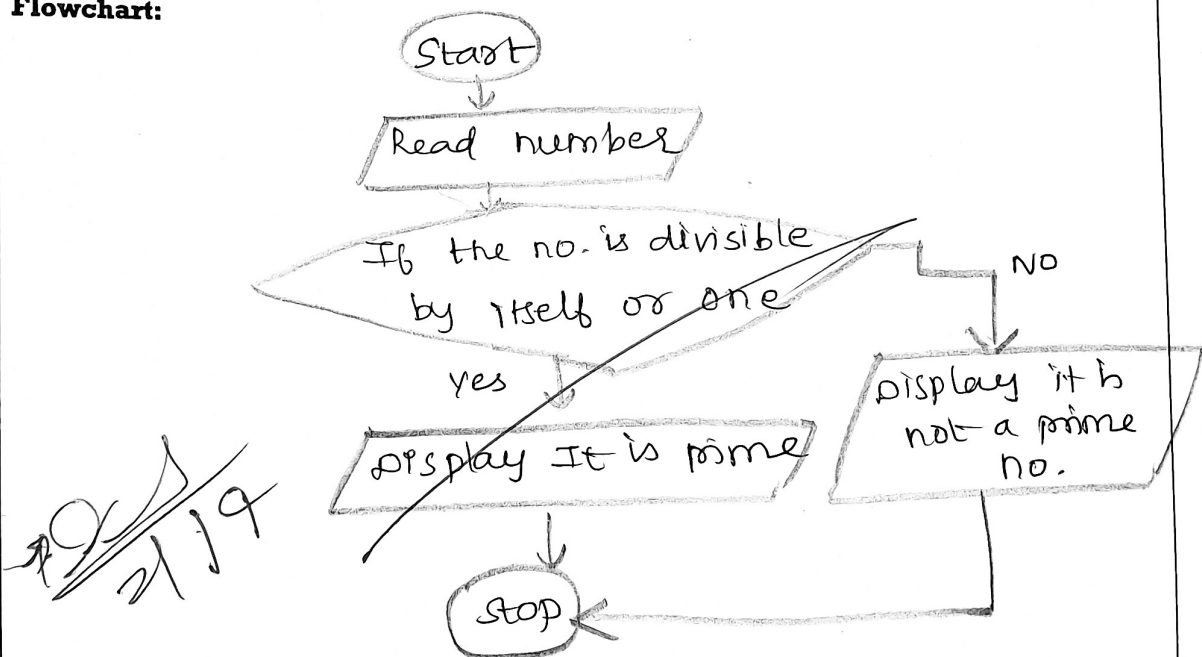 Flowchart:
Start
Read number
If the no. is divisible
by itself or one
NO
Yes
Display it is
not a prime
no.
Display It is prime
Stop